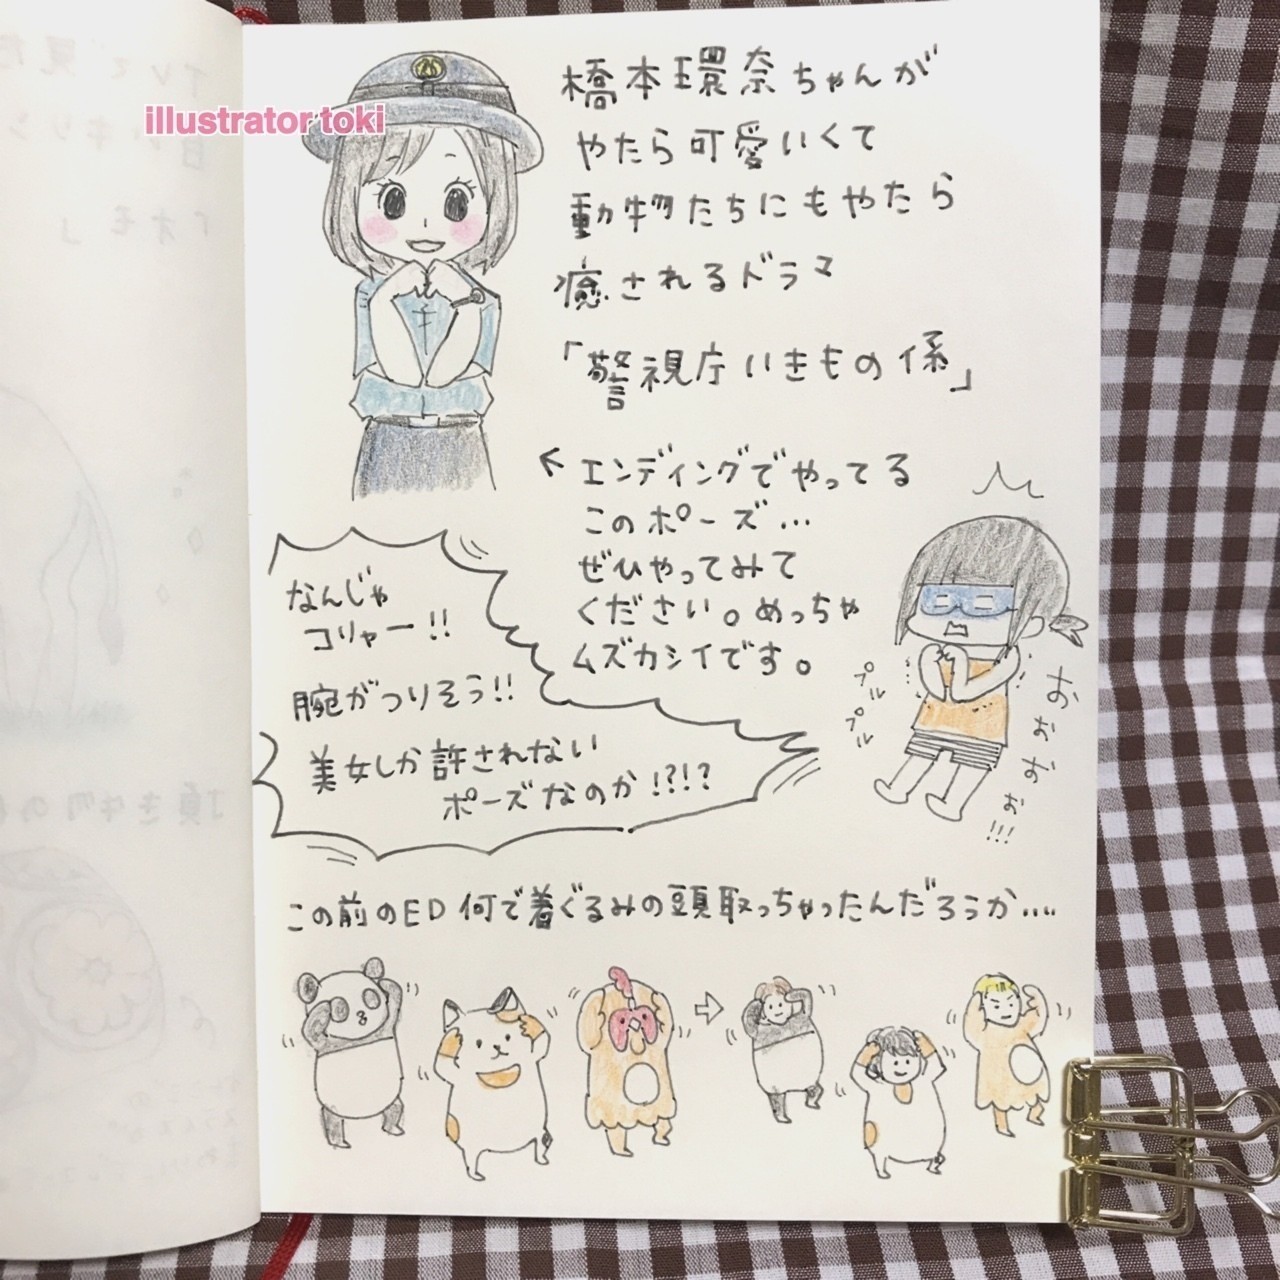 illustrator toki
橋本環奈ちゃんが
やたら可愛いくて
動物たちにもやたら
癒されるドラマ
「警視庁いきもの係」
← エンディングでやってる
このポーズ…
ぜひやってみて
ください。めっちゃ
ムズカシイです。
なんじゃ
コリャー!!
腕がつりそう!!
美女しか許されない
ポーズなのか!?!?
プル
プル
おぉおぉ!!!
この前のED何で着ぐるみの頭取っちゃったんだろうか….